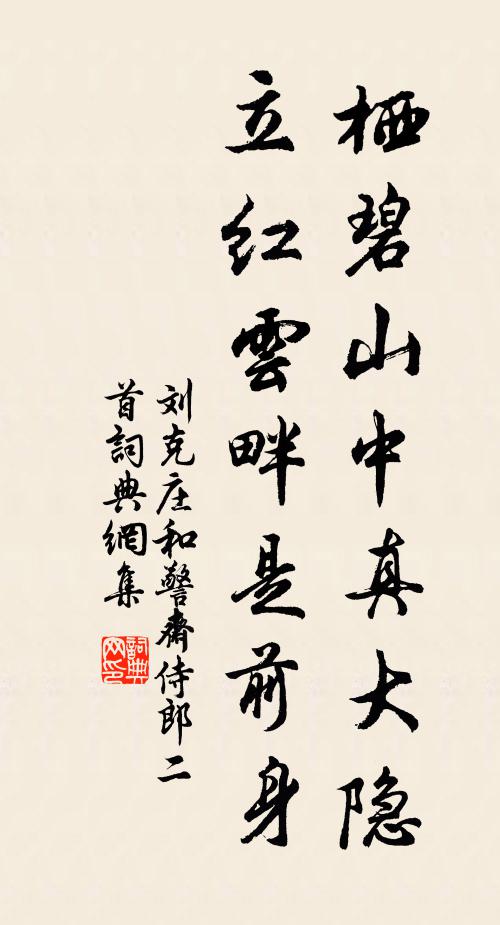 栖碧山中真大隐
立红雲畔是前身
刘克庄和警齋侍郎二
首詞典網集
詞典網印